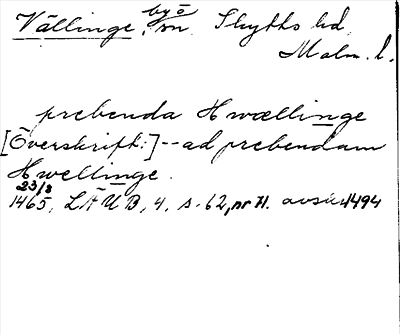 Vällinge, by o sn. Skytts hd.
Malm. l.
prebenda Hwællinge
[Överskrift:] -- ad prebendam
Hwellinge.
23/3
1465, LÄUB, 4, s. 62, nr H. avskr. 1494